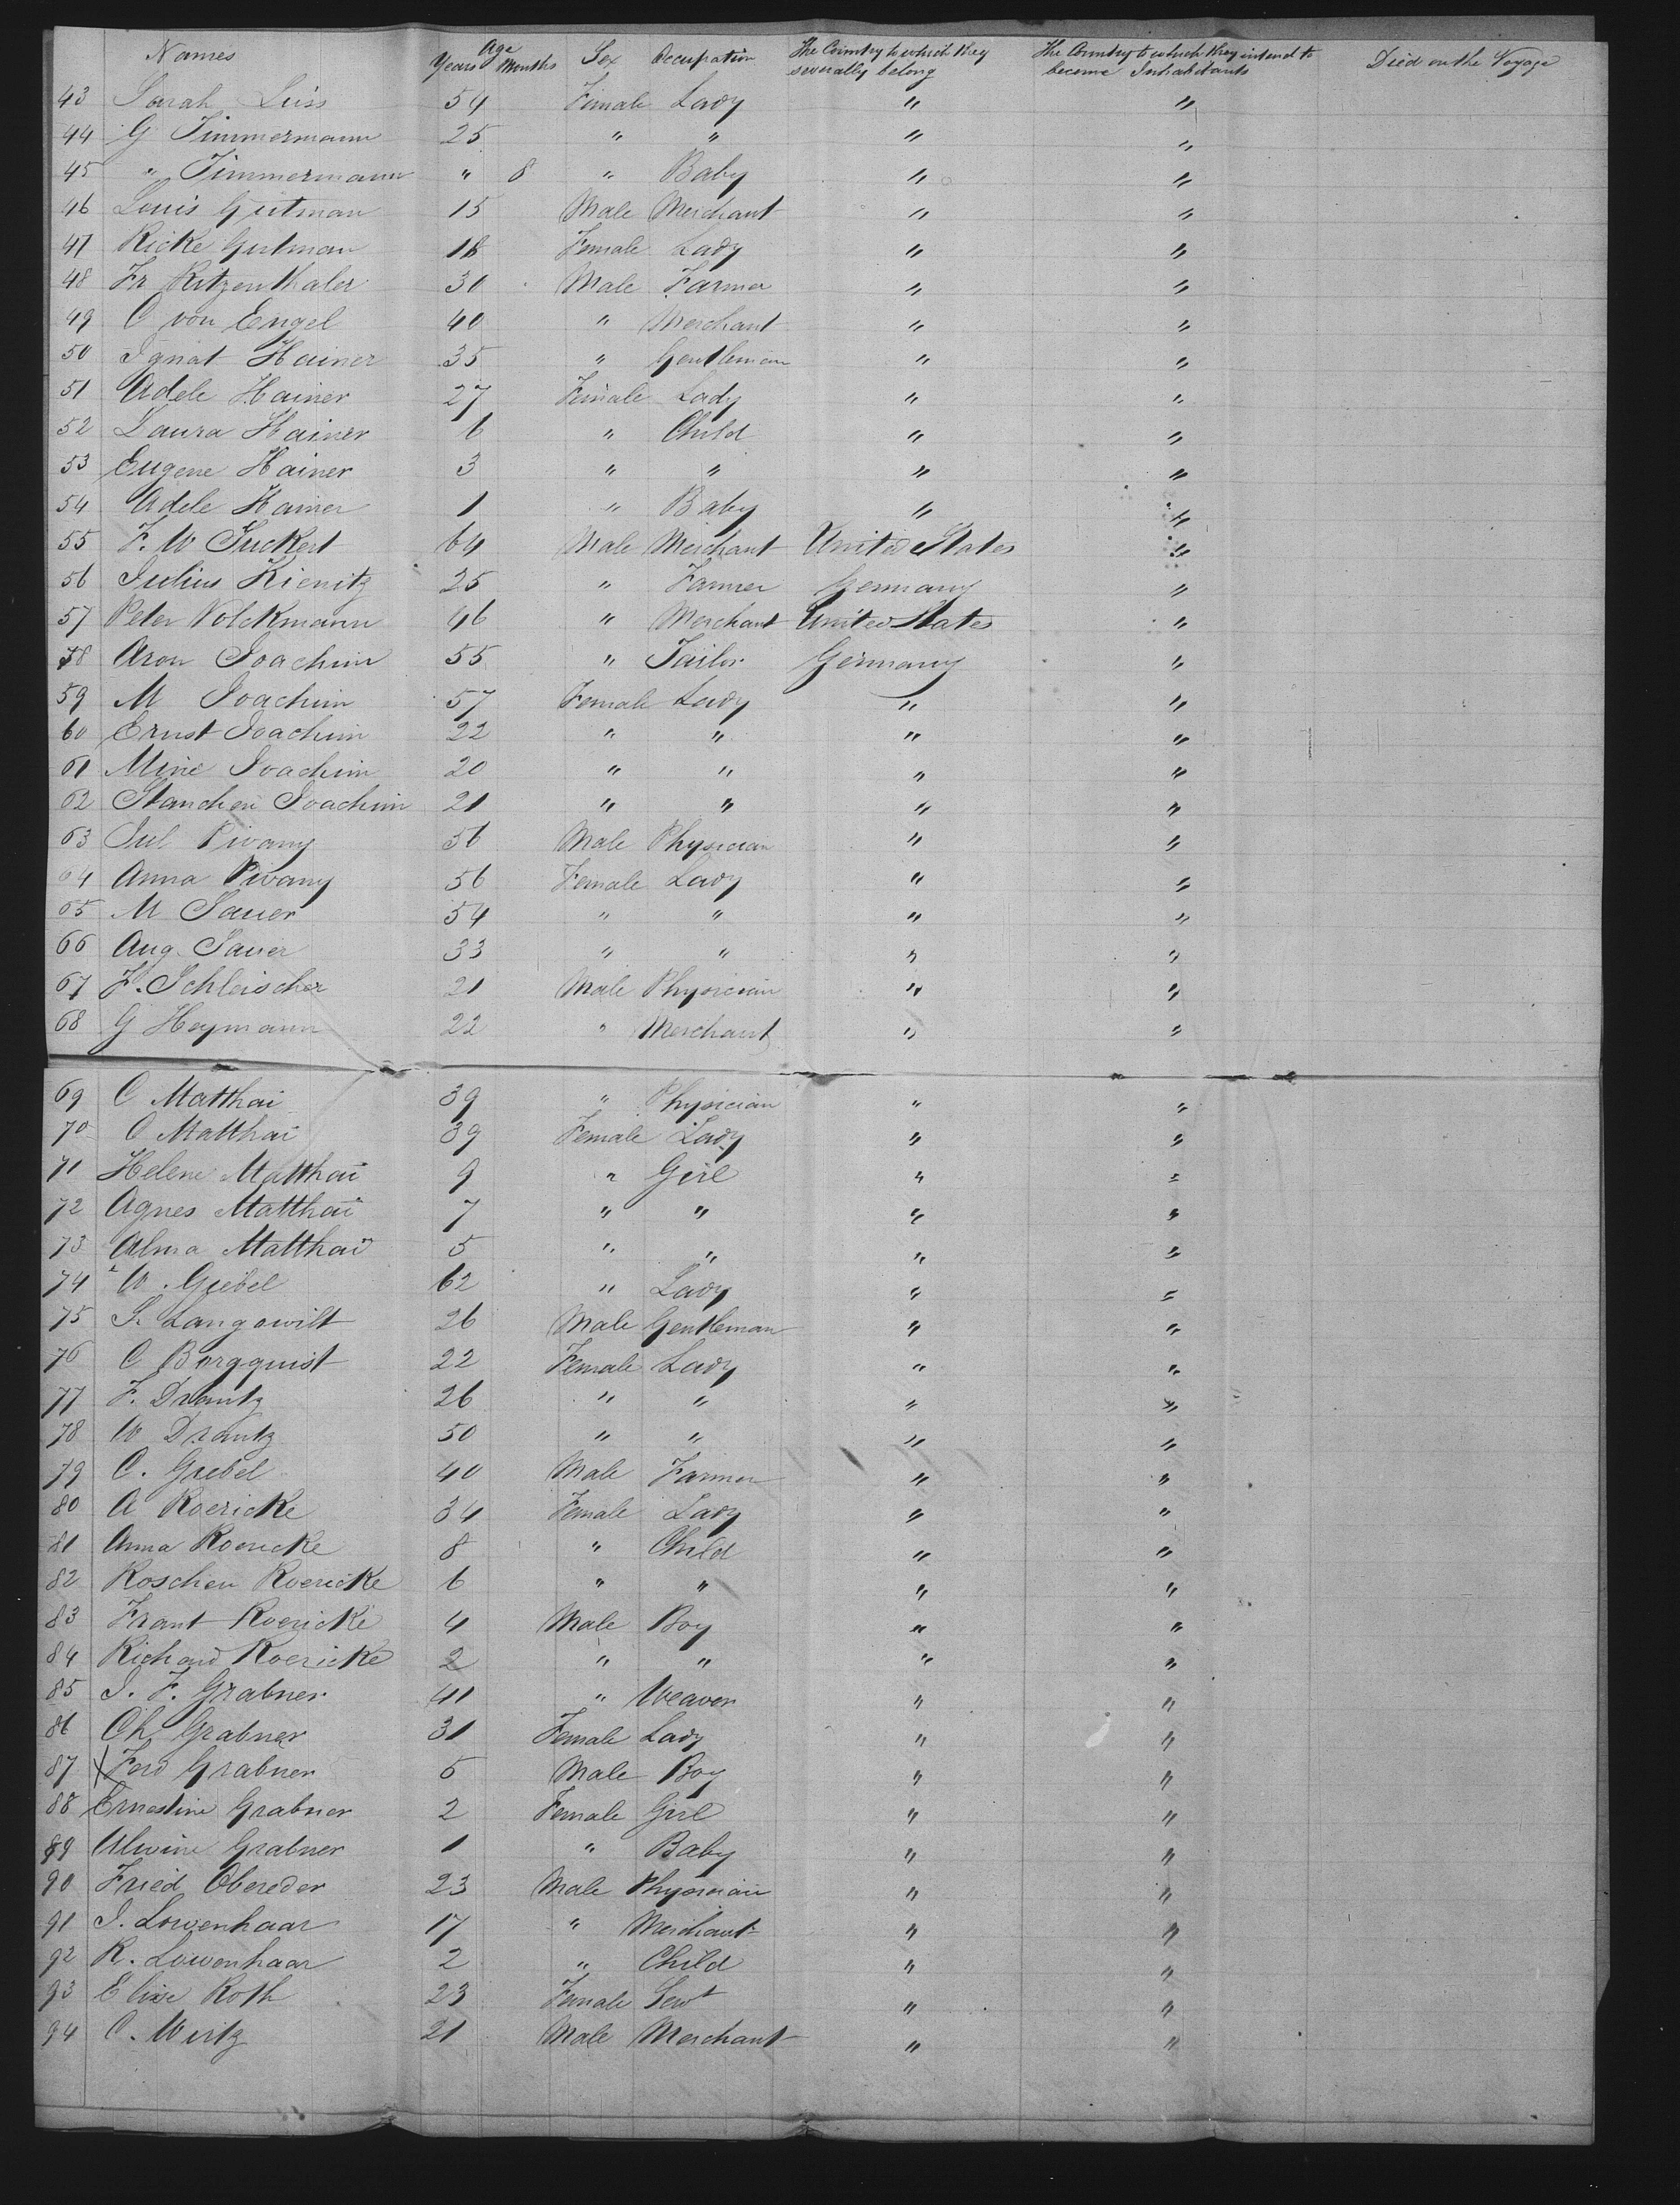 Names Age Years Months Sex Occupation The Country to which they severally belong The Country to which they intend to become Inhabitants Died on the Voyage
43 Sarah Leiss 54 Female Lady " "
44 G Timmermann 25 " " " "
45 " Timmermann " 8 " Baby " "
46 Louis Gutman 15 Male Merchant " "
47 Ricke Gutman 18 Female Lady " "
48 Fr Ritzenthaler 30 Male Farmer " "
49 C von Engel 40 " Merchant " "
50 Ignat Hainer 35 " Gentleman " "
51 Adele Hainer 27 Female Lady " "
52 Laura Hainer 6 " Child " "
53 Eugene Hainer 3 " " " "
54 Adele Hainer 1 " Baby " "
55 F. W Suckert 64 Male Merchant United States "
56 Julius Kienitz 25 " Farmer Germany "
57 Peter Volckmann 46 " Merchant United States "
58 Aron Joachim 55 " Tailor Germany "
59 M Joachim 57 Female Lady " "
60 Ernst Joachim 22 " " " "
61 Mine Joachim 20 " " " "
62 Joachim 21 " " " "
63 Jul Pivany 56 Male Physician " "
64 Anna Pivany 56 Female Lady " "
65 M Sauer 54 " " " "
66 Aug. Sauer 33 " " " "
67 F. Schleischer 21 Male Physician " "
68 G Heymann 22 " Merchant " "
69 C Matthai 39 " Physician " "
70 C Matthai 39 Female Lady " "
71 Helene Matthai 9 " Girl " "
72 Agnes Matthai 7 " " " "
73 Alma Matthai 5 " " " "
74 W. Giebel 62 " Lady " "
75 S. Langowilt 26 Male Gentleman " "
76 C Borgquist 22 Female Lady " "
77 F. Drantz 26 " " " "
78 W Drantz 50 " " " "
79 C. Giebel 40 Male Farmer " "
80 A Roericke 34 Female Lady " "
81 Anna Roericke 8 " Child " "
82 Roschen Roericke 6 " " " "
83 Frant Roericke 4 Male Boy " "
84 Richard Roericke 2 " " " "
85 J. F. Grabner 41 " Weaver " "
86 Ch Grabner 31 Female Lady " "
87 Ferd Grabner 5 Male Boy " "
88 Ernestine Grabner 2 Female Girl " "
89 Alwine Grabner 1 " Baby " "
90 Fried Obereder 23 Male Physician " "
91 J. Lowenhaar 17 " Merchant " "
92 R. Lowenhaar 2 " Child " "
93 Elise Roth 23 Female Servt " "
94 C. Wirtz 21 Male Merchant " "